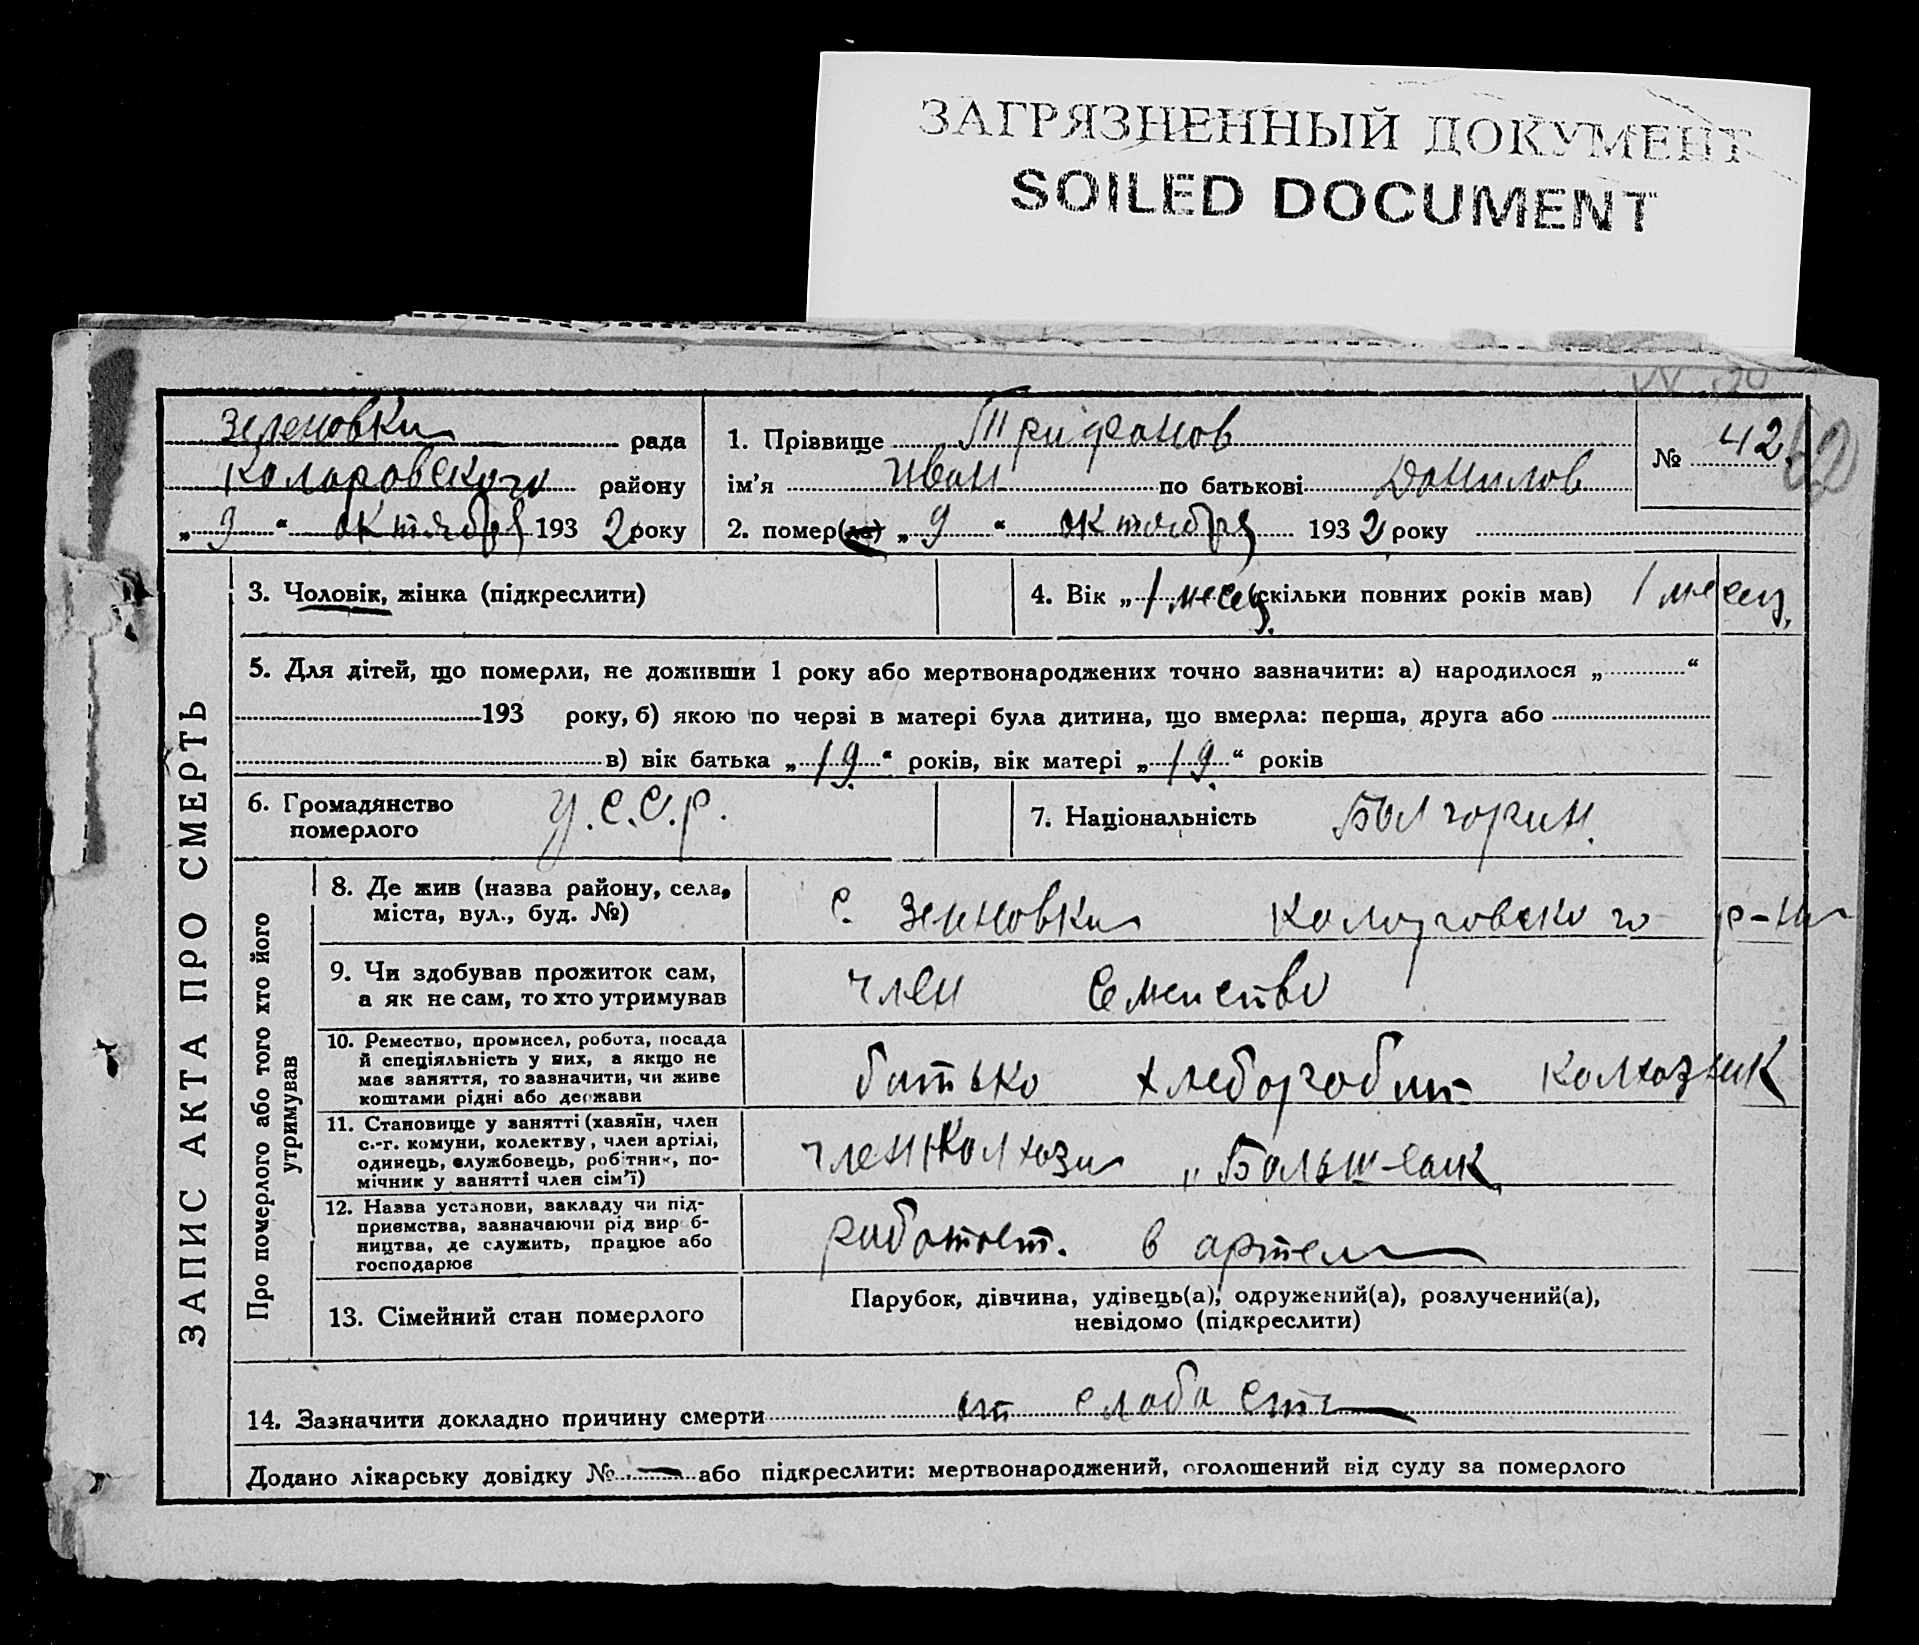 ЗАГРЯЗНЕННЫЙ ДОКУМЕНТ
SOILED DOCUMENT
Зеленовки рада
Коларовского району
„ 9 “ октября 193 2 року
1. Прізвище Трифонов
ім'я Иван по батькові Данилов
2. помер(ла) „ 9 “ октября 193 2 року
№ 42
ЗАПИС АКТА ПРО СМЕРТЬ
3. Чоловік, жінка (підкреслити)
4. Вік „ 1 месец. (скільки повних років мав) 1 месец.
5. Для дітей, що померли, не доживши 1 року або мертвонароджених точно зазначити: а) народилося „ “
193 року, б) якою по черзі в матері була дитина, що вмерла: перша, друга або
в) вік батька „ 19. “ років, вік матері „ 19. “ років
6. Громадянство
померлого
У.С.С.р.
7. Національність Болгорин.
Про померлого або того хто його
утримував
8. Де жив (назва району, села,
міста, вул., буд. №)
с. Зеленовки Коларовского р-на
9. Чи здобував прожиток сам,
а як не сам, то хто утримував
член семейства
10. Ремество, промисел, робота, посада
й спеціяльність у них, а якщо не
має заняття, то зазначити, чи живе
коштами рідні або держави
батько хлебороб колхозник
11. Становище у занятті (хазяїн, член
с.-г. комуни, колективу, член артілі,
одинець, службовець, робітник, по-
мічник у занятті член сім'ї)
член колхоза „
12. Назва установи, закладу чи під-
приємства, зазначаючи рід вироб-
ництва, де служить, працює або
господарює
работает. в артели
13. Сімейний стан померлого
Парубок, дівчина, удівець(а), одружений(а), розлучений(а),
невідомо (підкреслити)
14. Зазначити докладно причину смерти от слабости
Додано лікарську довідку № — або підкреслити: мертвонароджений, оголошений від суду за померлого